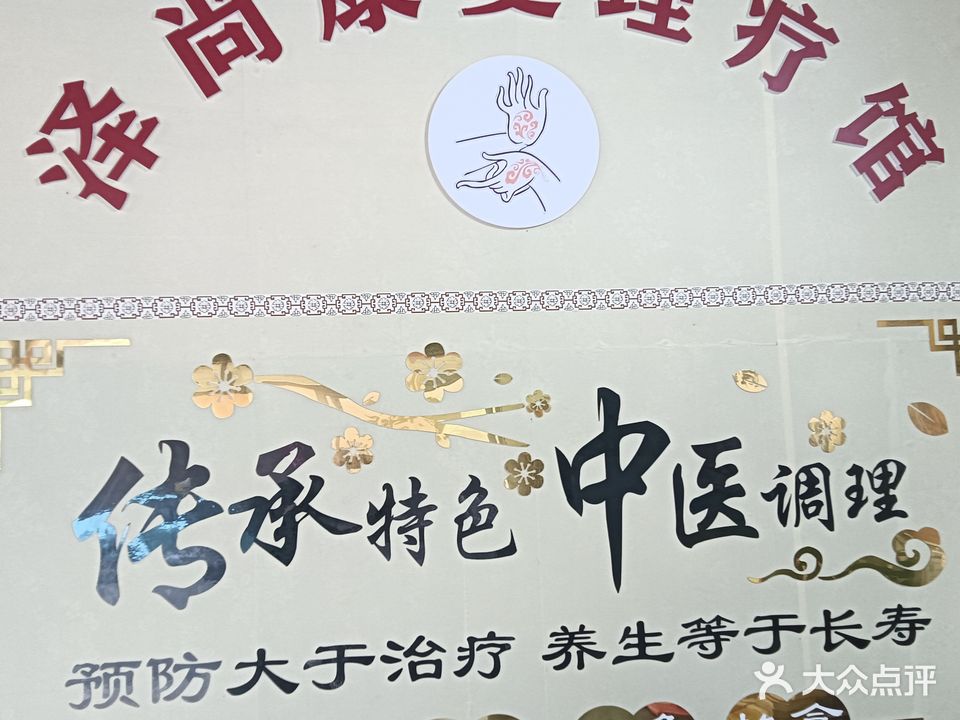 泽尚康美理疗馆
传承特色 中医调理
预防大于治疗 养生等于长寿
大众点评